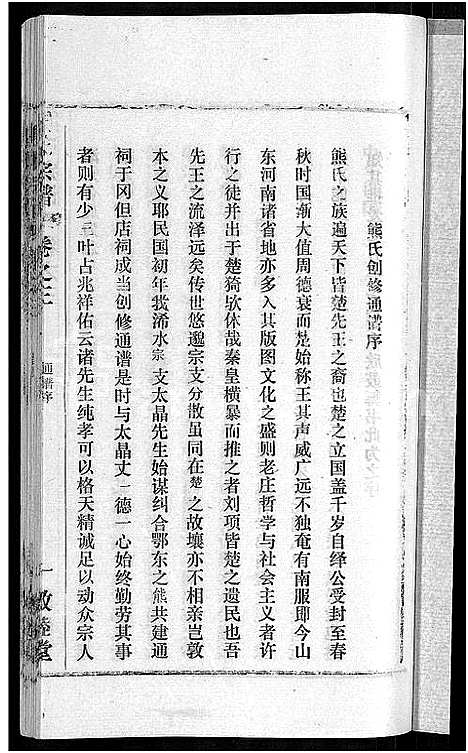 熊氏创修通谱序
熊氏之族遍天下皆楚先王之裔也楚之立国盖千岁自绎公受封至春
秋时国渐大值周德衰而楚始称王其声威广远不独奄有南服即今山
东河南诸省地亦多入其版图文化之盛则老庄哲学与社会主义者许
行之徒并出于楚猗欤休哉秦皇横暴而推之者刘项皆楚之遗民也吾
先王之流泽远矣传世悠邈宗支分散虽同在楚之故壤亦不相亲岂敦
本之义耶民国初年我浠水宗支太晶先生始谋纠合鄂东之熊共建通
祠于冈但店祠成当创修通谱是时与太晶丈一德一心始终勤劳其事
者则有少三叶占兆祥佑云诸先生纯孝可以格天精诚足以动众宗人
氏宗谱
卷之
通谱序
一
敦睦堂